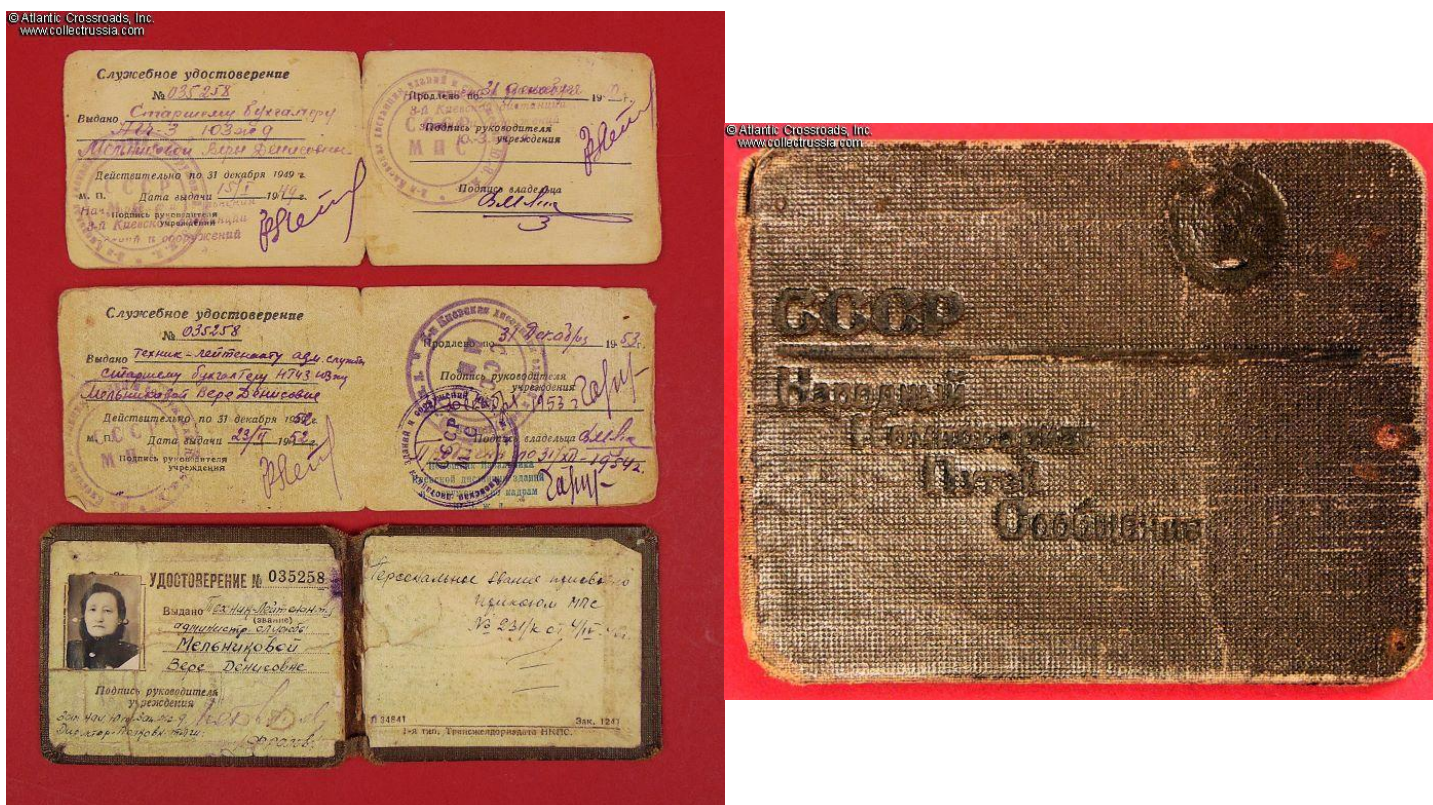 © Atlantic Crossroads, Inc.
www.collectrussia.com
Служебное удостоверение
№ 035258
Выдано Старшему бухгалтеру
ПЧ-3 ЮЗжд
Мельниковой Вере Денисовне
Действительно по 31 декабря 1949 г.
м. П. Дата выдачи 15/I 1949 г.
Подпись руководителя
учреждения
3-й Киевской дистанции
зданий и сооружений
Продлено по 31 декабря 19 г.
3-й Киевской дистанции
Подпись руководителя
учреждения
СССР
МПС
Подпись владельца
Служебное удостоверение
№ 035258
Выдано техник-лейтенанту адм. службы
старшему бухгалтеру
Мельниковой Вере Денисовне
Действительно по 31 декабря 1952 г.
м. П. Дата выдачи 23/II 1952 г.
СССР
МПС
Подпись руководителя
учреждения
Продлено по 31 декабря 1953 г.
Подпись руководителя
учреждения
1953 г
СССР
Подпись владельца
по 31/XII-1954г.
дистанции зданий
кадрам
УДОСТОВЕРЕНИЕ № 035258
Выдано Техник-лейтенанту
(звание)
администр. службы
Мельниковой
Вере Денисовне
Подпись руководителя
учреждения
Персональное звание присвоено
приказом МПС
№ 231/к от 4/IV
Зак. 1241
1-я тип. Трансжелдориздата НКПС.
© Atlantic Crossroads, Inc.
www.collectrussia.com
СССР
Народный
Комиссариат
Путей
Сообщения